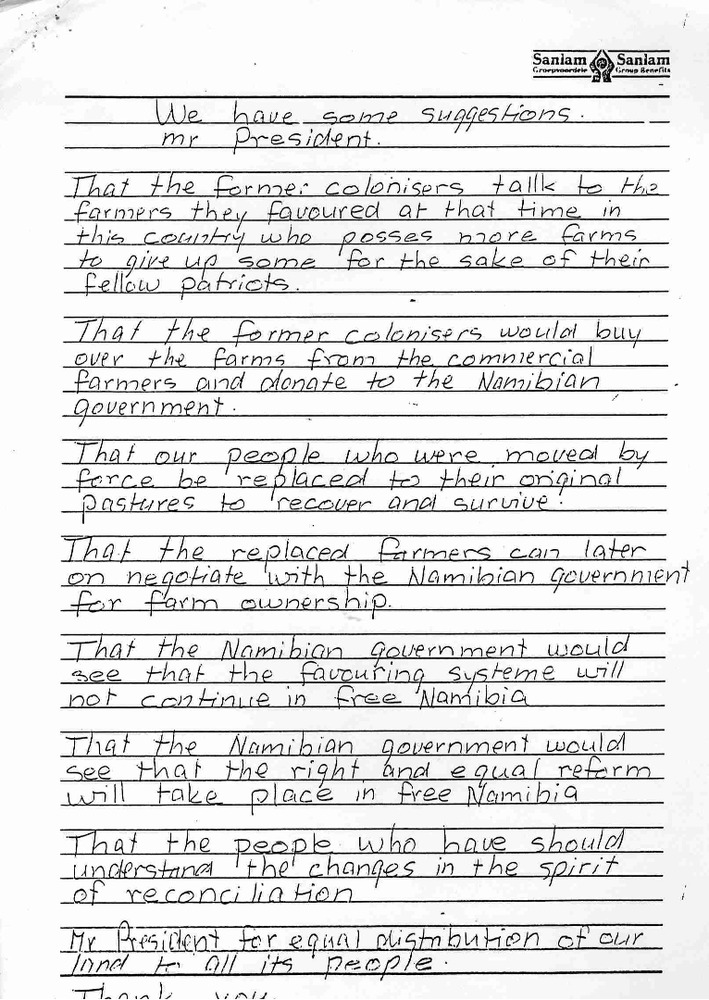 Sanlam Sanlam
Groepvoordele Group Benefits
We have some suggestions.
mr President.
That the former colonisers tallk to the
farmers they favoured at that time in
this country who posses more farms
to give up some for the sake of their
fellow patriots.
That the former colonisers would buy
over the farms from the commercial
farmers and donate to the Namibian
government.
That our people who were moved by
force be replaced to their original
pastures to recover and survive.
That the replaced farmers can later
on negotiate with the Namibian government
for farm ownership.
That the Namibian government would
see that the favouring systeme will
not continue in free Namibia
That the Namibian government would
see that the right and equal reform
will take place in free Namibia
That the people who have should
understand the changes in the spirit
of reconciliation
Mr President for equal distribution of our
land to all its people.
Thank you.